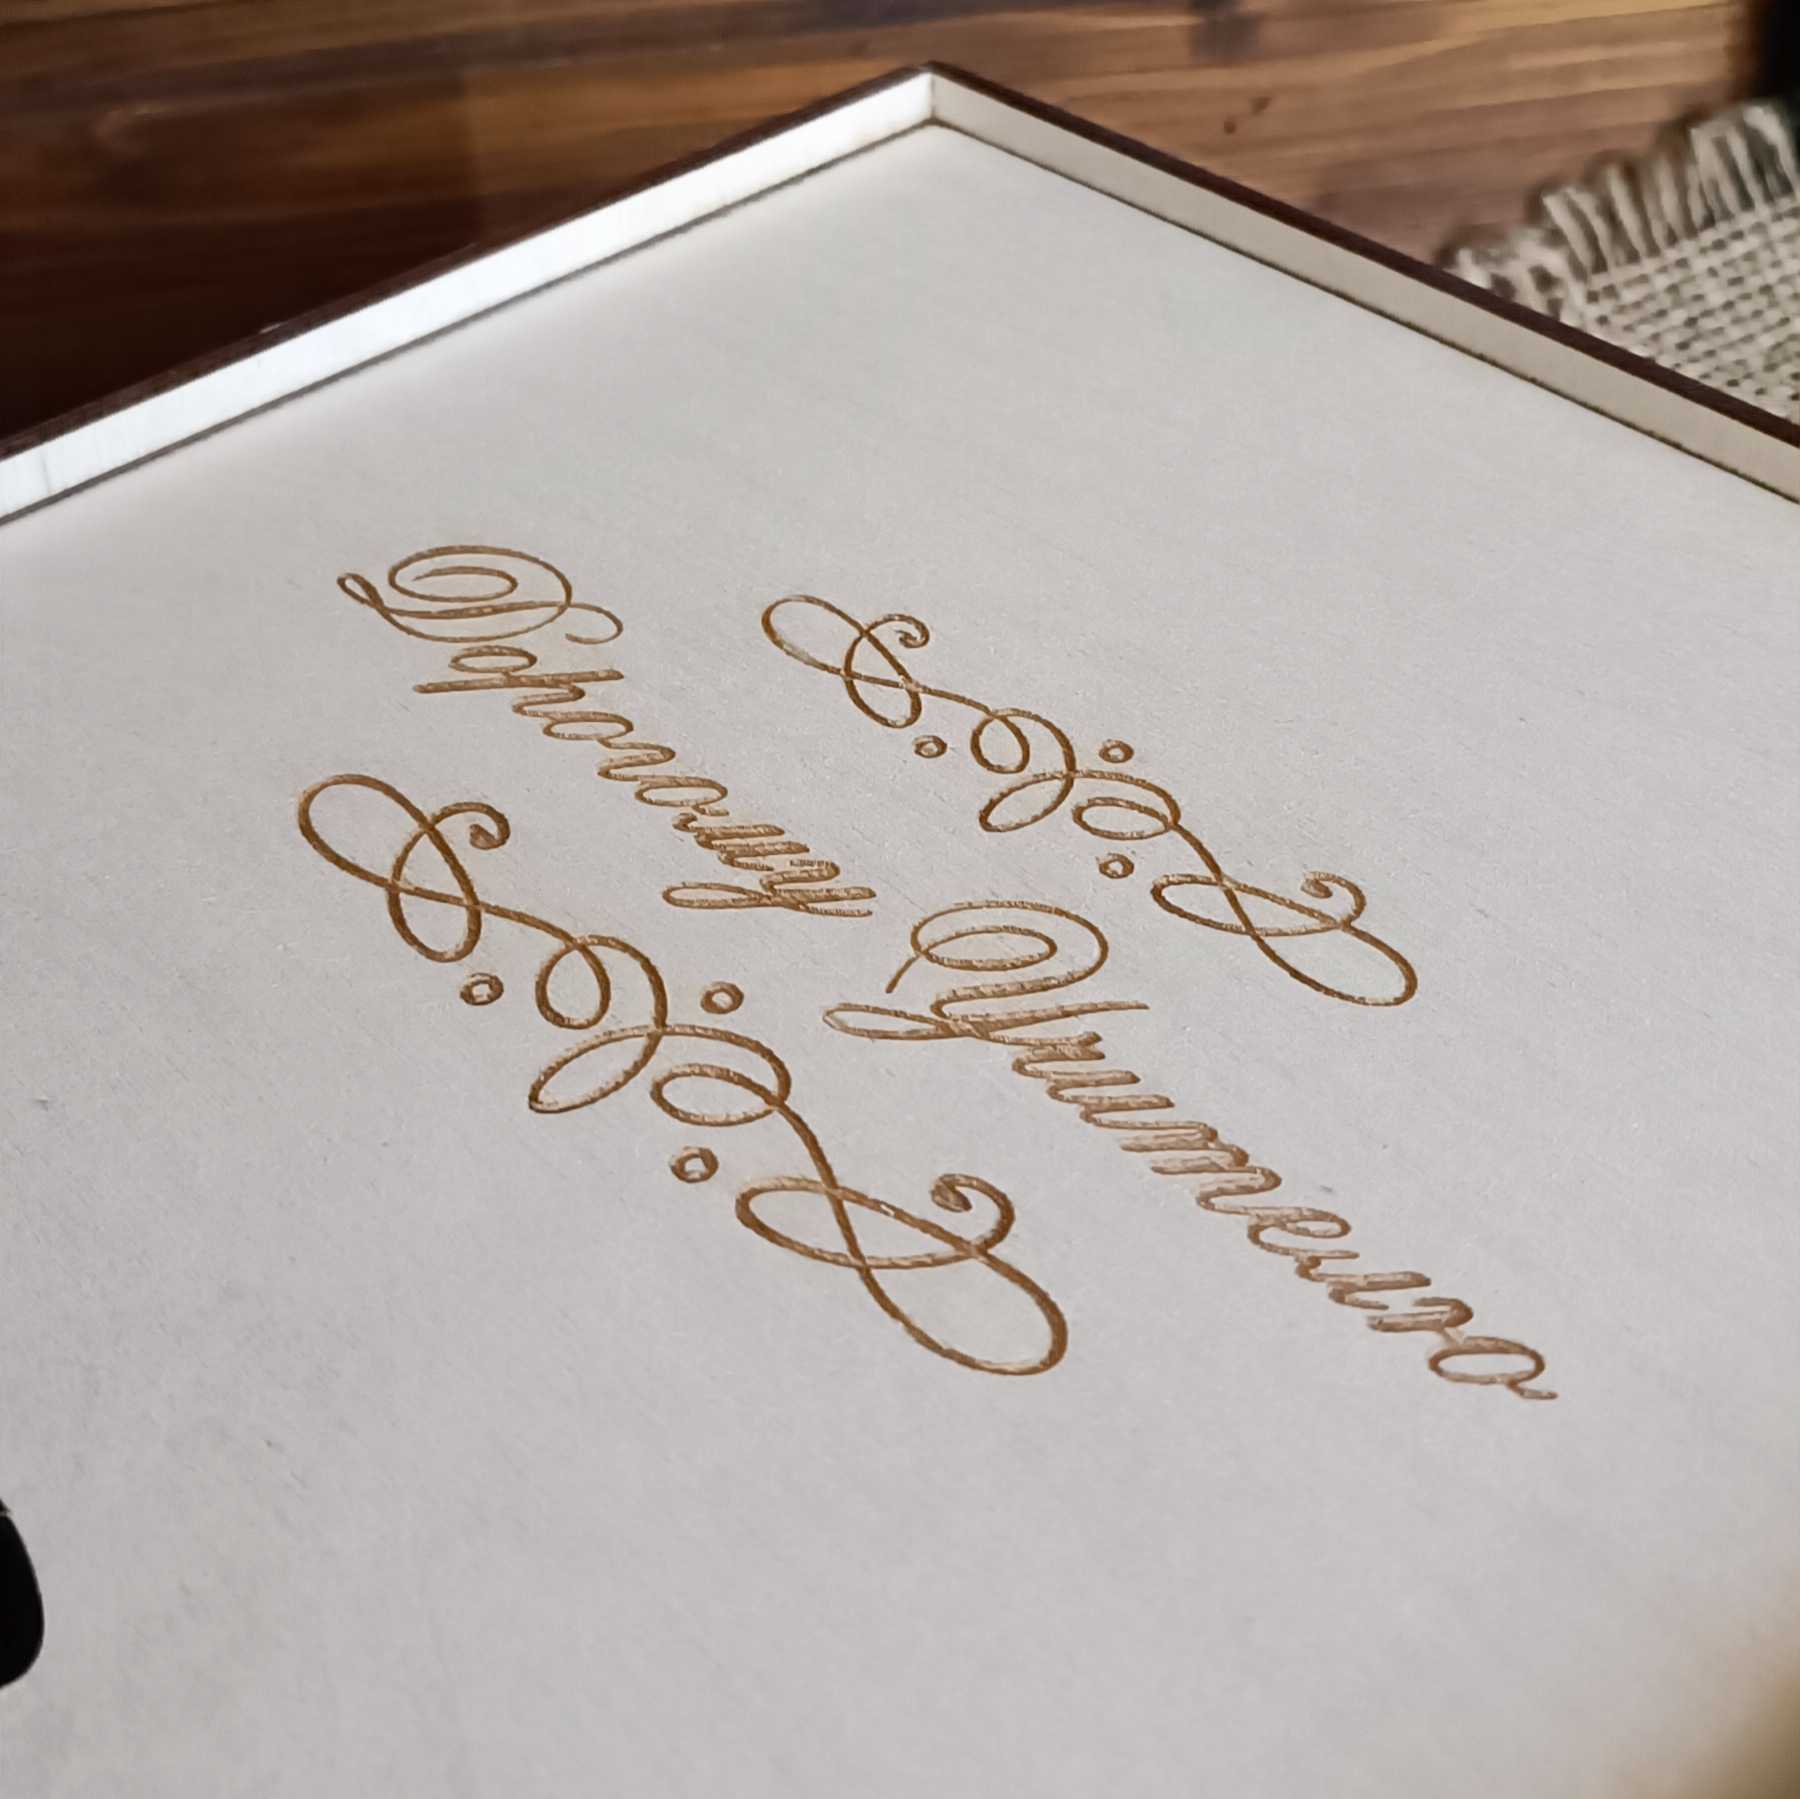 Дорогому Учителю